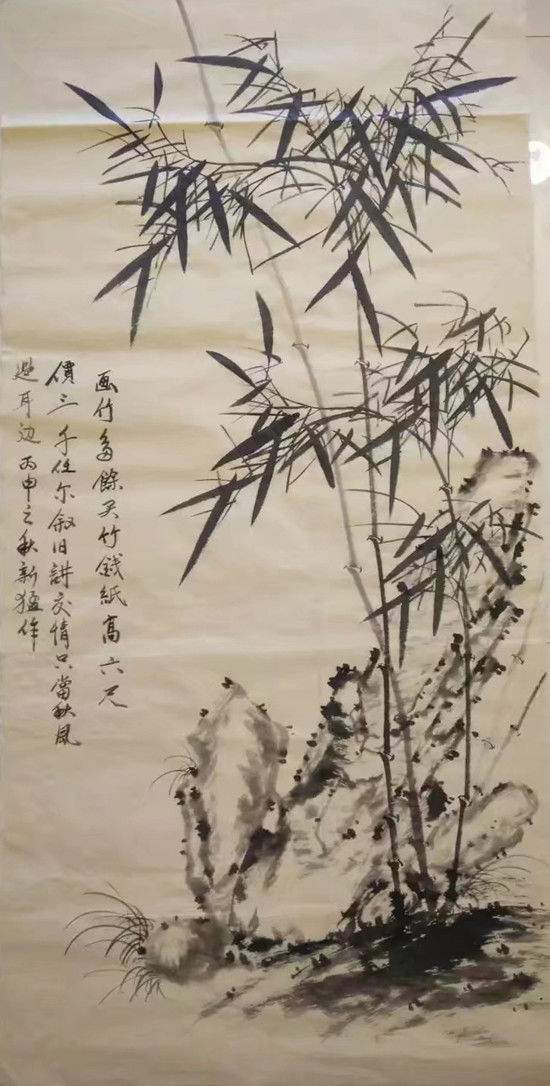 画竹多餘买竹钱紙高六尺
價三千任尔叙旧讲交情只當秋風
過耳边丙申之秋新猛作